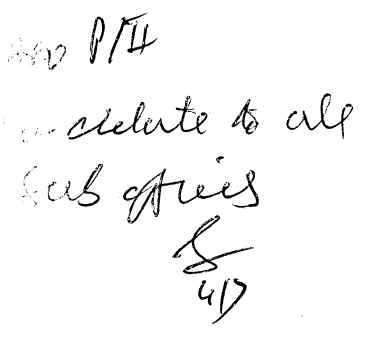 P/II
circulate to all
Sub offices
4/7